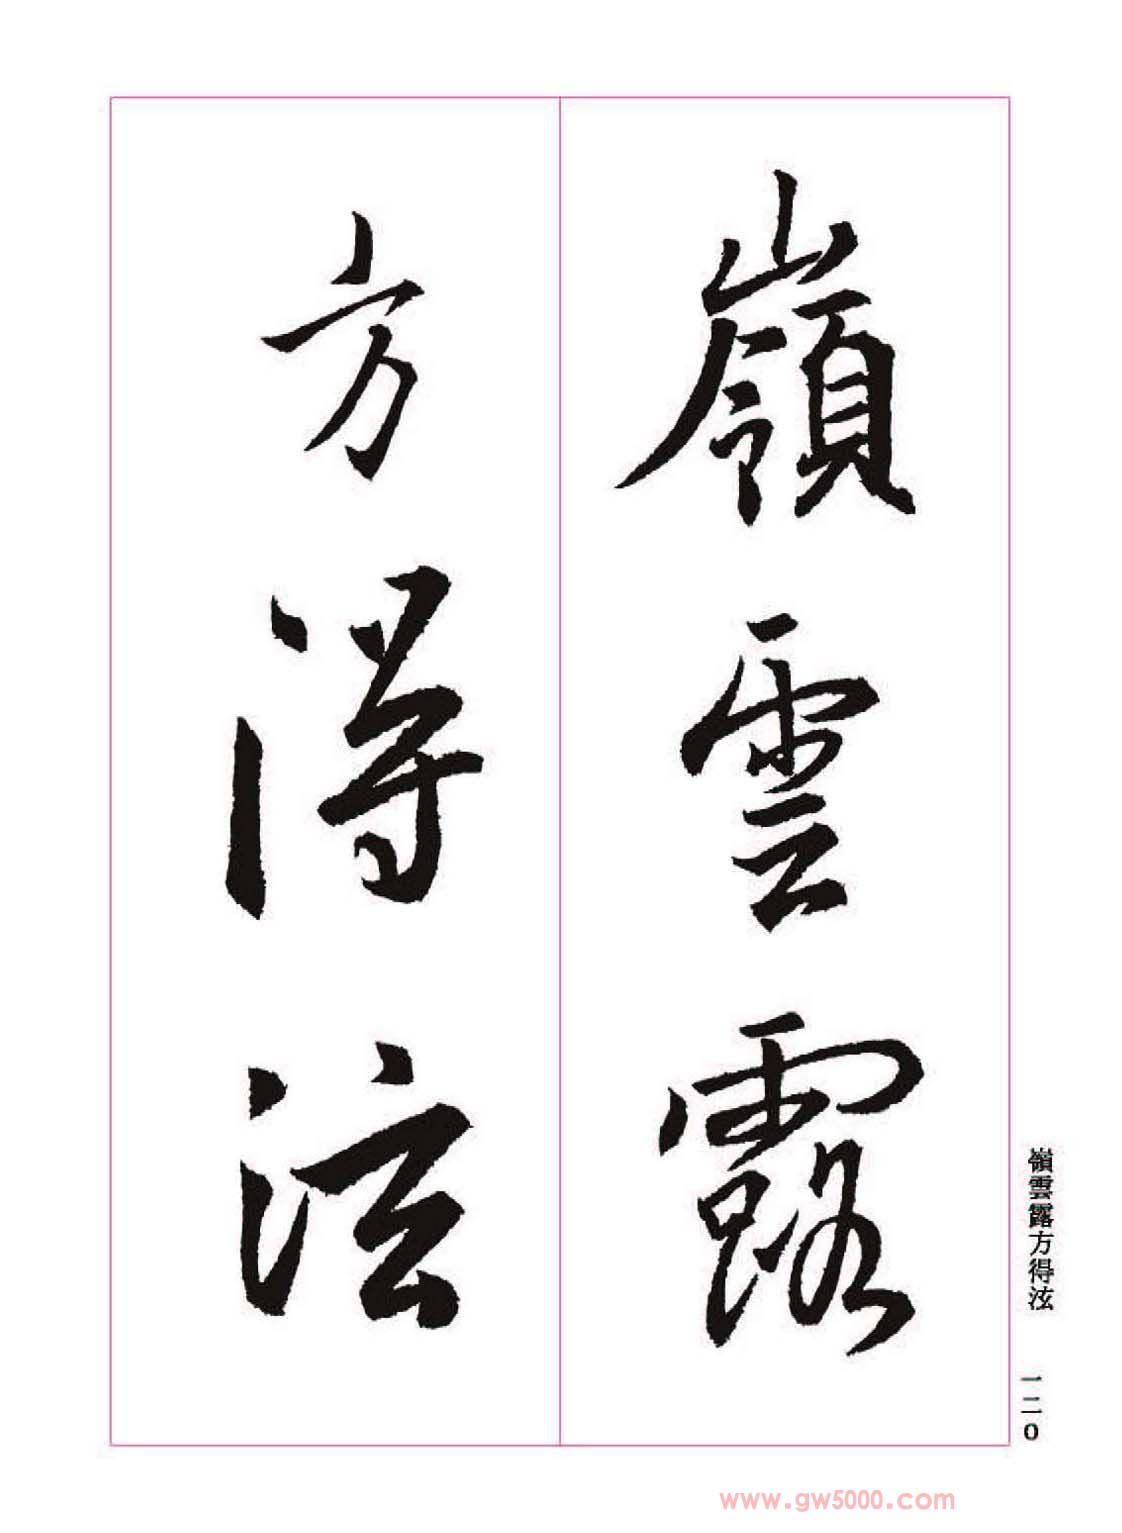 嶺雲露
方得泫
嶺雲露方得泫
一二0
www.gw5000.com